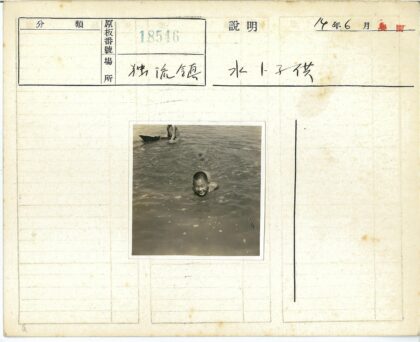 分類
原板番號 18546
説明
14年6月
場所 独流鎮
水ト子供